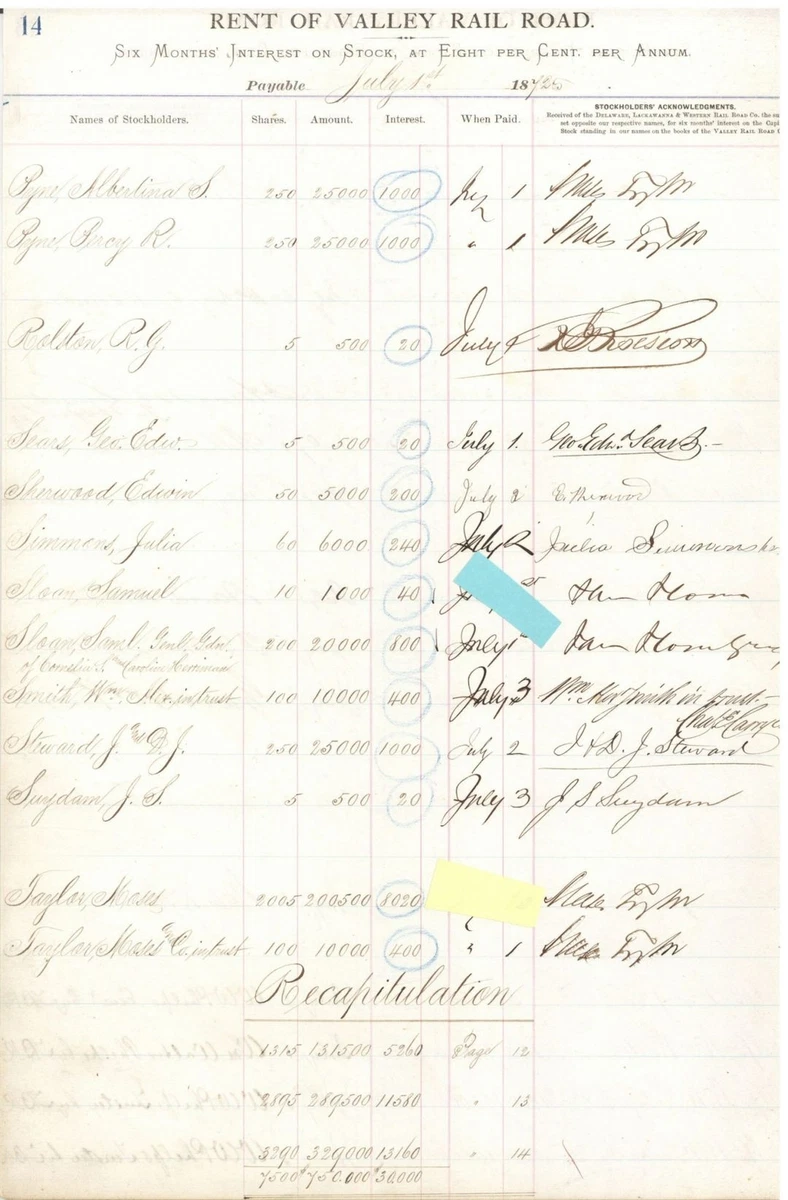 14
RENT OF VALLEY RAIL ROAD.
SIX MONTHS' INTEREST ON STOCK, AT EIGHT PER CENT. PER ANNUM.
Payable July 1st 187
Names of Stockholders. Shares. Amount. Interest. When Paid. STOCKHOLDERS' ACKNOWLEDGMENTS.
Received of the DELAWARE, LACKAWANNA & WESTERN RAIL ROAD Co. the su
set opposite our respective names, for six months' interest on the Capi
Stock standing in our names on the books of the VALLEY RAIL ROAD C
Pyne, Albertina S. 250 25000 1000 1
Pyne, Percy R. 250 25000 1000 " 1
Rolston, R. G. 5 500 20 July
Sears, Geo. Edw. 5 500 20 July 1. Geo. Edwd Sears.
Sherwood, Edwin 50 5000 200 July 2 E. Sherwood
Simmons, Julia 60 6000 240 July 2 Julia Simmons
Sloan, Samuel 10 1000 40 Sam Sloan
Sloan, Saml. Genl. Gdn. 200 20000 800 July 1st Sam Sloan
of Cornelia S. and Caroline
Smith, Wm. Alex. in trust 100 10000 400 July 3 Wm. Alex Smith in trust
Steward, J. and D. J. 250 25000 1000 July 2 J & D. J. Steward
Suydam, J. S. 5 500 20 July 3 J S Suydam
Taylor, Moses 2005 200500 8020
Taylor, Moses & Co. in trust 100 10000 400 " 1
Recapitulation
1315 131500 5260 Page 12
2895 289500 11580 " 13
3290 329000 13160 " 14
7500 $750.000 $30.000